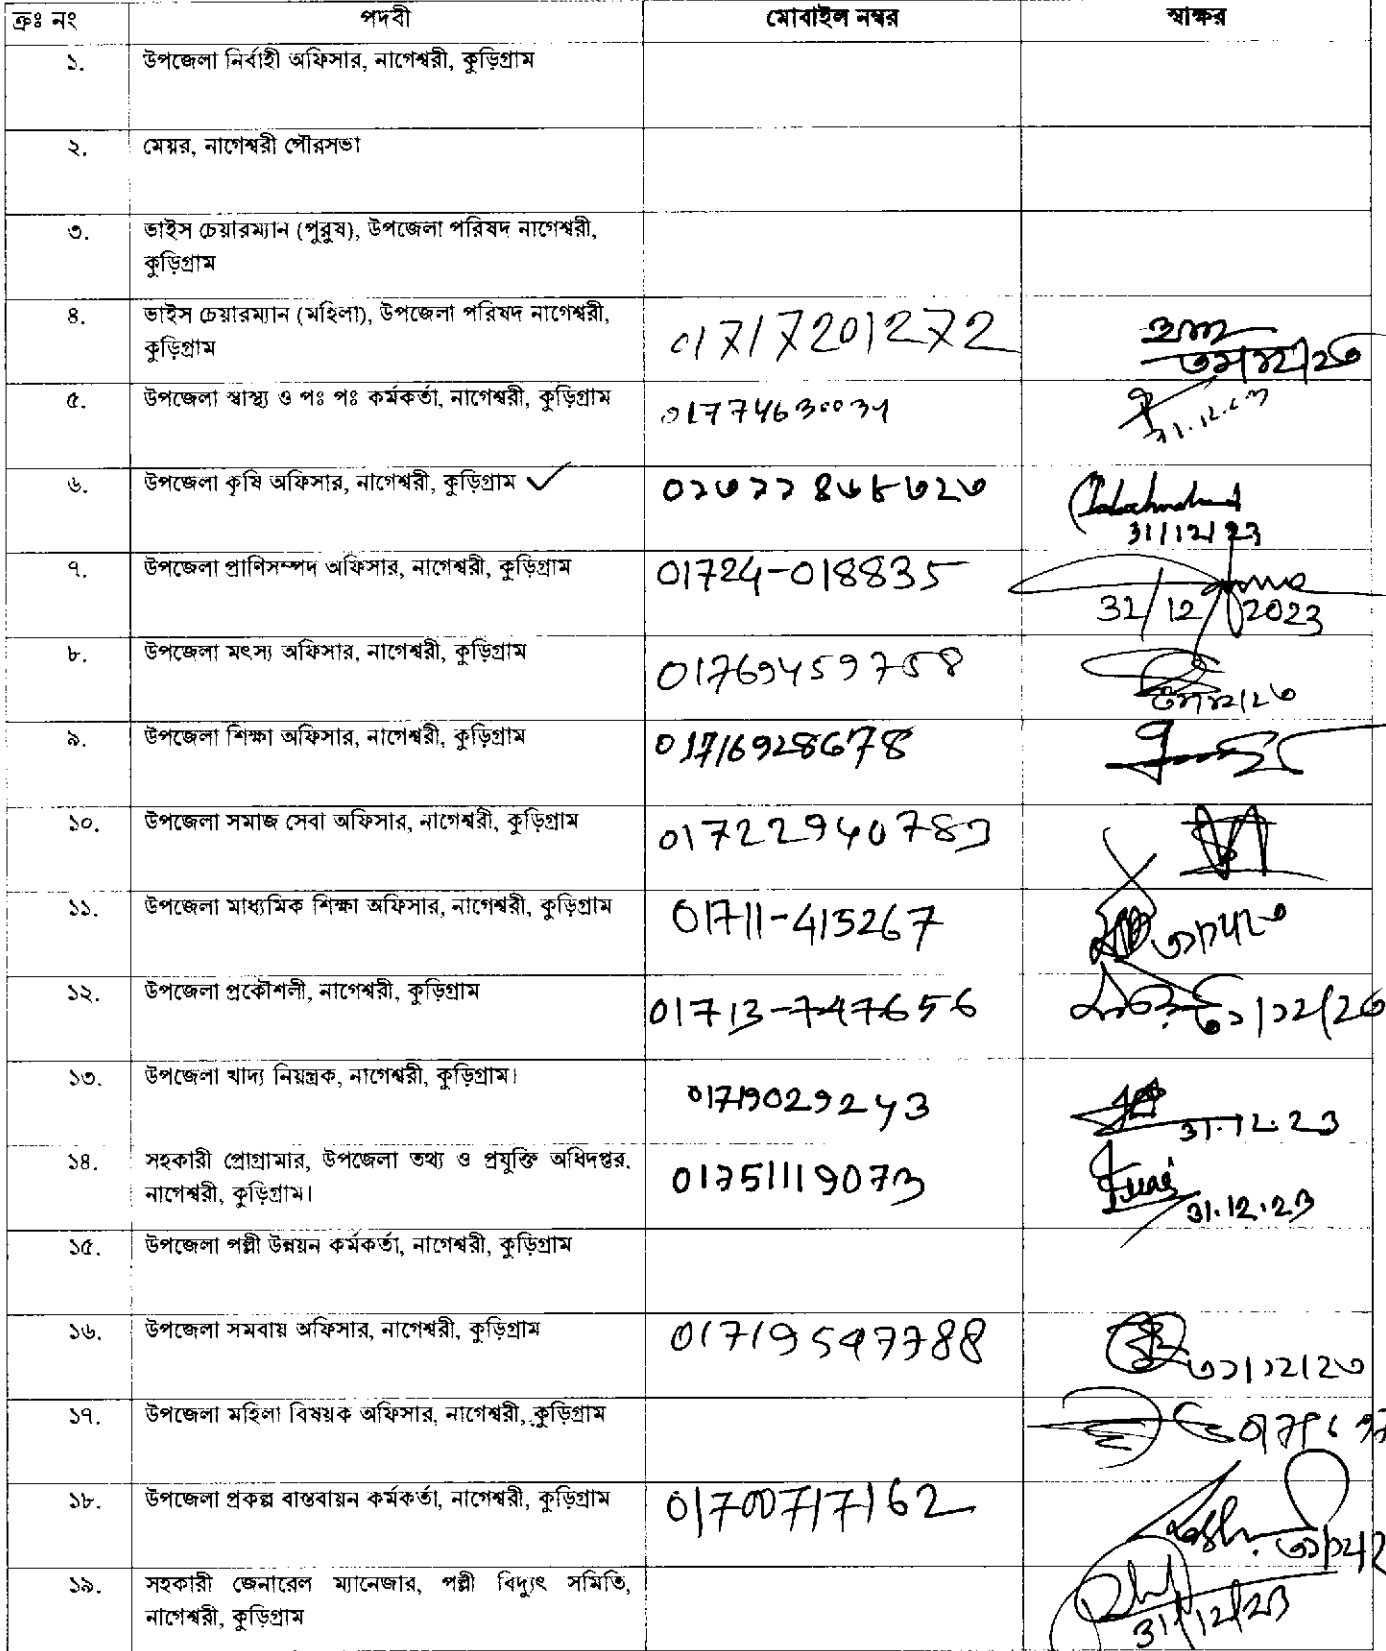 ক্রঃ নং পদবী মোবাইল নম্বর স্বাক্ষর
১. উপজেলা নির্বাহী অফিসার, নাগেশ্বরী, কুড়িগ্রাম
২. মেয়র, নাগেশ্বরী পৌরসভা
৩. ভাইস চেয়ারম্যান (পুরুষ), উপজেলা পরিষদ নাগেশ্বরী,
কুড়িগ্রাম
৪. ভাইস চেয়ারম্যান (মহিলা), উপজেলা পরিষদ নাগেশ্বরী,
কুড়িগ্রাম 01717201272
৫. উপজেলা স্বাস্থ্য ও পঃ পঃ কর্মকর্তা, নাগেশ্বরী, কুড়িগ্রাম
৬. উপজেলা কৃষি অফিসার, নাগেশ্বরী, কুড়িগ্রাম ✓
31/12/23
৭. উপজেলা প্রাণিসম্পদ অফিসার, নাগেশ্বরী, কুড়িগ্রাম 01724-018835
31/12/2023
৮. উপজেলা মৎস্য অফিসার, নাগেশ্বরী, কুড়িগ্রাম 01769459758
৯. উপজেলা শিক্ষা অফিসার, নাগেশ্বরী, কুড়িগ্রাম 01716928678
১০. উপজেলা সমাজ সেবা অফিসার, নাগেশ্বরী, কুড়িগ্রাম
১১. উপজেলা মাধ্যমিক শিক্ষা অফিসার, নাগেশ্বরী, কুড়িগ্রাম 01711-415267
১২. উপজেলা প্রকৌশলী, নাগেশ্বরী, কুড়িগ্রাম 01713-747656 ৩১/১২/২৩
১৩. উপজেলা খাদ্য নিয়ন্ত্রক, নাগেশ্বরী, কুড়িগ্রাম। 01719029243 31.12.23
১৪. সহকারী প্রোগ্রামার, উপজেলা তথ্য ও প্রযুক্তি অধিদপ্তর,
নাগেশ্বরী, কুড়িগ্রাম। 01751119073 31.12.23
১৫. উপজেলা পল্লী উন্নয়ন কর্মকর্তা, নাগেশ্বরী, কুড়িগ্রাম
১৬. উপজেলা সমবায় অফিসার, নাগেশ্বরী, কুড়িগ্রাম 01719547788 ৩১/১২/২৩
১৭. উপজেলা মহিলা বিষয়ক অফিসার, নাগেশ্বরী, কুড়িগ্রাম
১৮. উপজেলা প্রকল্প বাস্তবায়ন কর্মকর্তা, নাগেশ্বরী, কুড়িগ্রাম 01700717162
১৯. সহকারী জেনারেল ম্যানেজার, পল্লী বিদ্যুৎ সমিতি,
নাগেশ্বরী, কুড়িগ্রাম 31/12/23